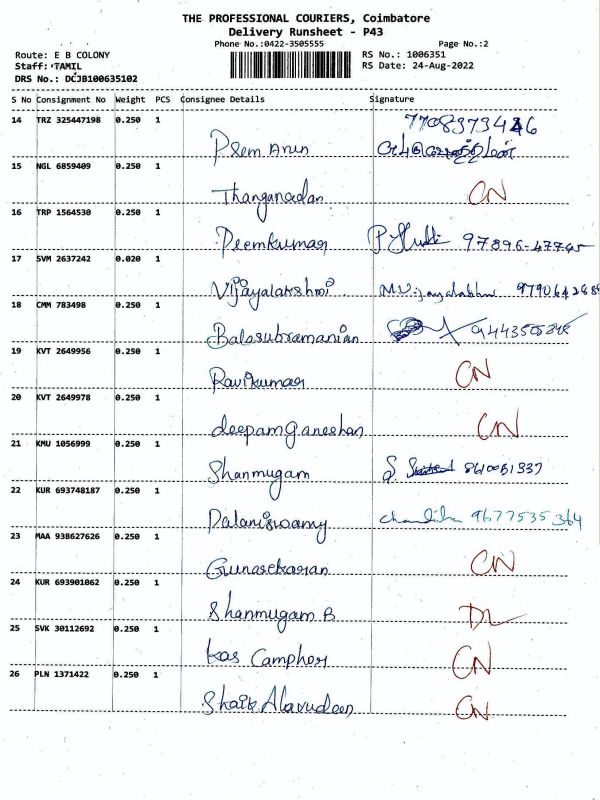 THE PROFESSIONAL COURIERS, Coimbatore
Delivery Runsheet - P43
Phone No.:0422-3505555 Page No.:2
Route: E B COLONY RS No.: 1006351
Staff: TAMIL RS Date: 24-Aug-2022
DRS No.: DCJB100635102
S No Consignment No Weight PCS Consignee Details Signature
14 TRZ 325447198 0.250 1
Prem Arun
15 NGL 6859409 0.250 1
Thanganadan CN
16 TRP 1564530 0.250 1
Premkumar 97896-47745
17 SVM 2637242 0.020 1
Vijayalakshmi
18 CMM 783498 0.250 1
Balasubramanian
19 KVT 2649956 0.250 1
Ravikumar CN
20 KVT 2649978 0.250 1
deepam Ganeshan CN
21 KMU 1056999 0.250 1
Shanmugam S.
22 KUR 693748187 0.250 1
Palaniswamy 9677535364
23 MAA 938627626 0.250 1
Gunasekaran CN
24 KUR 693901062 0.250 1
Shanmugam B DL
25 SVK 30112692 0.250 1
Kas Camphor CN
26 PLN 1371422 0.250 1
Shaik Alavudeen CN